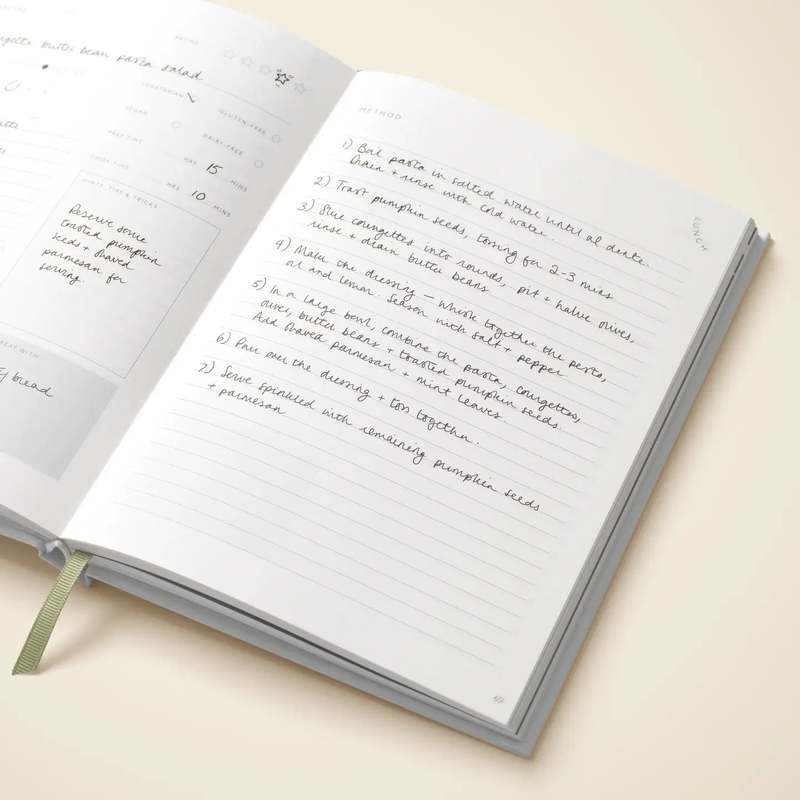 butter bean pasta salad
RATING
VEGETARIAN
VEGAN
GLUTEN-FREE
DAIRY-FREE
PREP TIME HRS 15 MINS
COOK TIME HRS 10 MINS
HINTS, TIPS & TRICKS
Reserve some
toasted pumpkin
seeds + shaved
parmesan for
serving.
EAT WITH
bread
METHOD
LUNCH
1) Boil pasta in salted water until al dente.
Drain + rinse with cold water
2) Toast pumpkin seeds, tossing for 2-3 mins
3) Slice courgettes into rounds, pit + halve olives,
rinse + drain butter beans
4) Make the dressing – whisk together the pesto,
oil and lemon. Season with salt + pepper
5) In a large bowl, combine the pasta, courgettes,
olives, butter beans + toasted pumpkin seeds.
Add shaved parmesan + mint leaves.
6) Pour over the dressing + toss together.
7) Serve sprinkled with remaining pumpkin seeds
+ parmesan